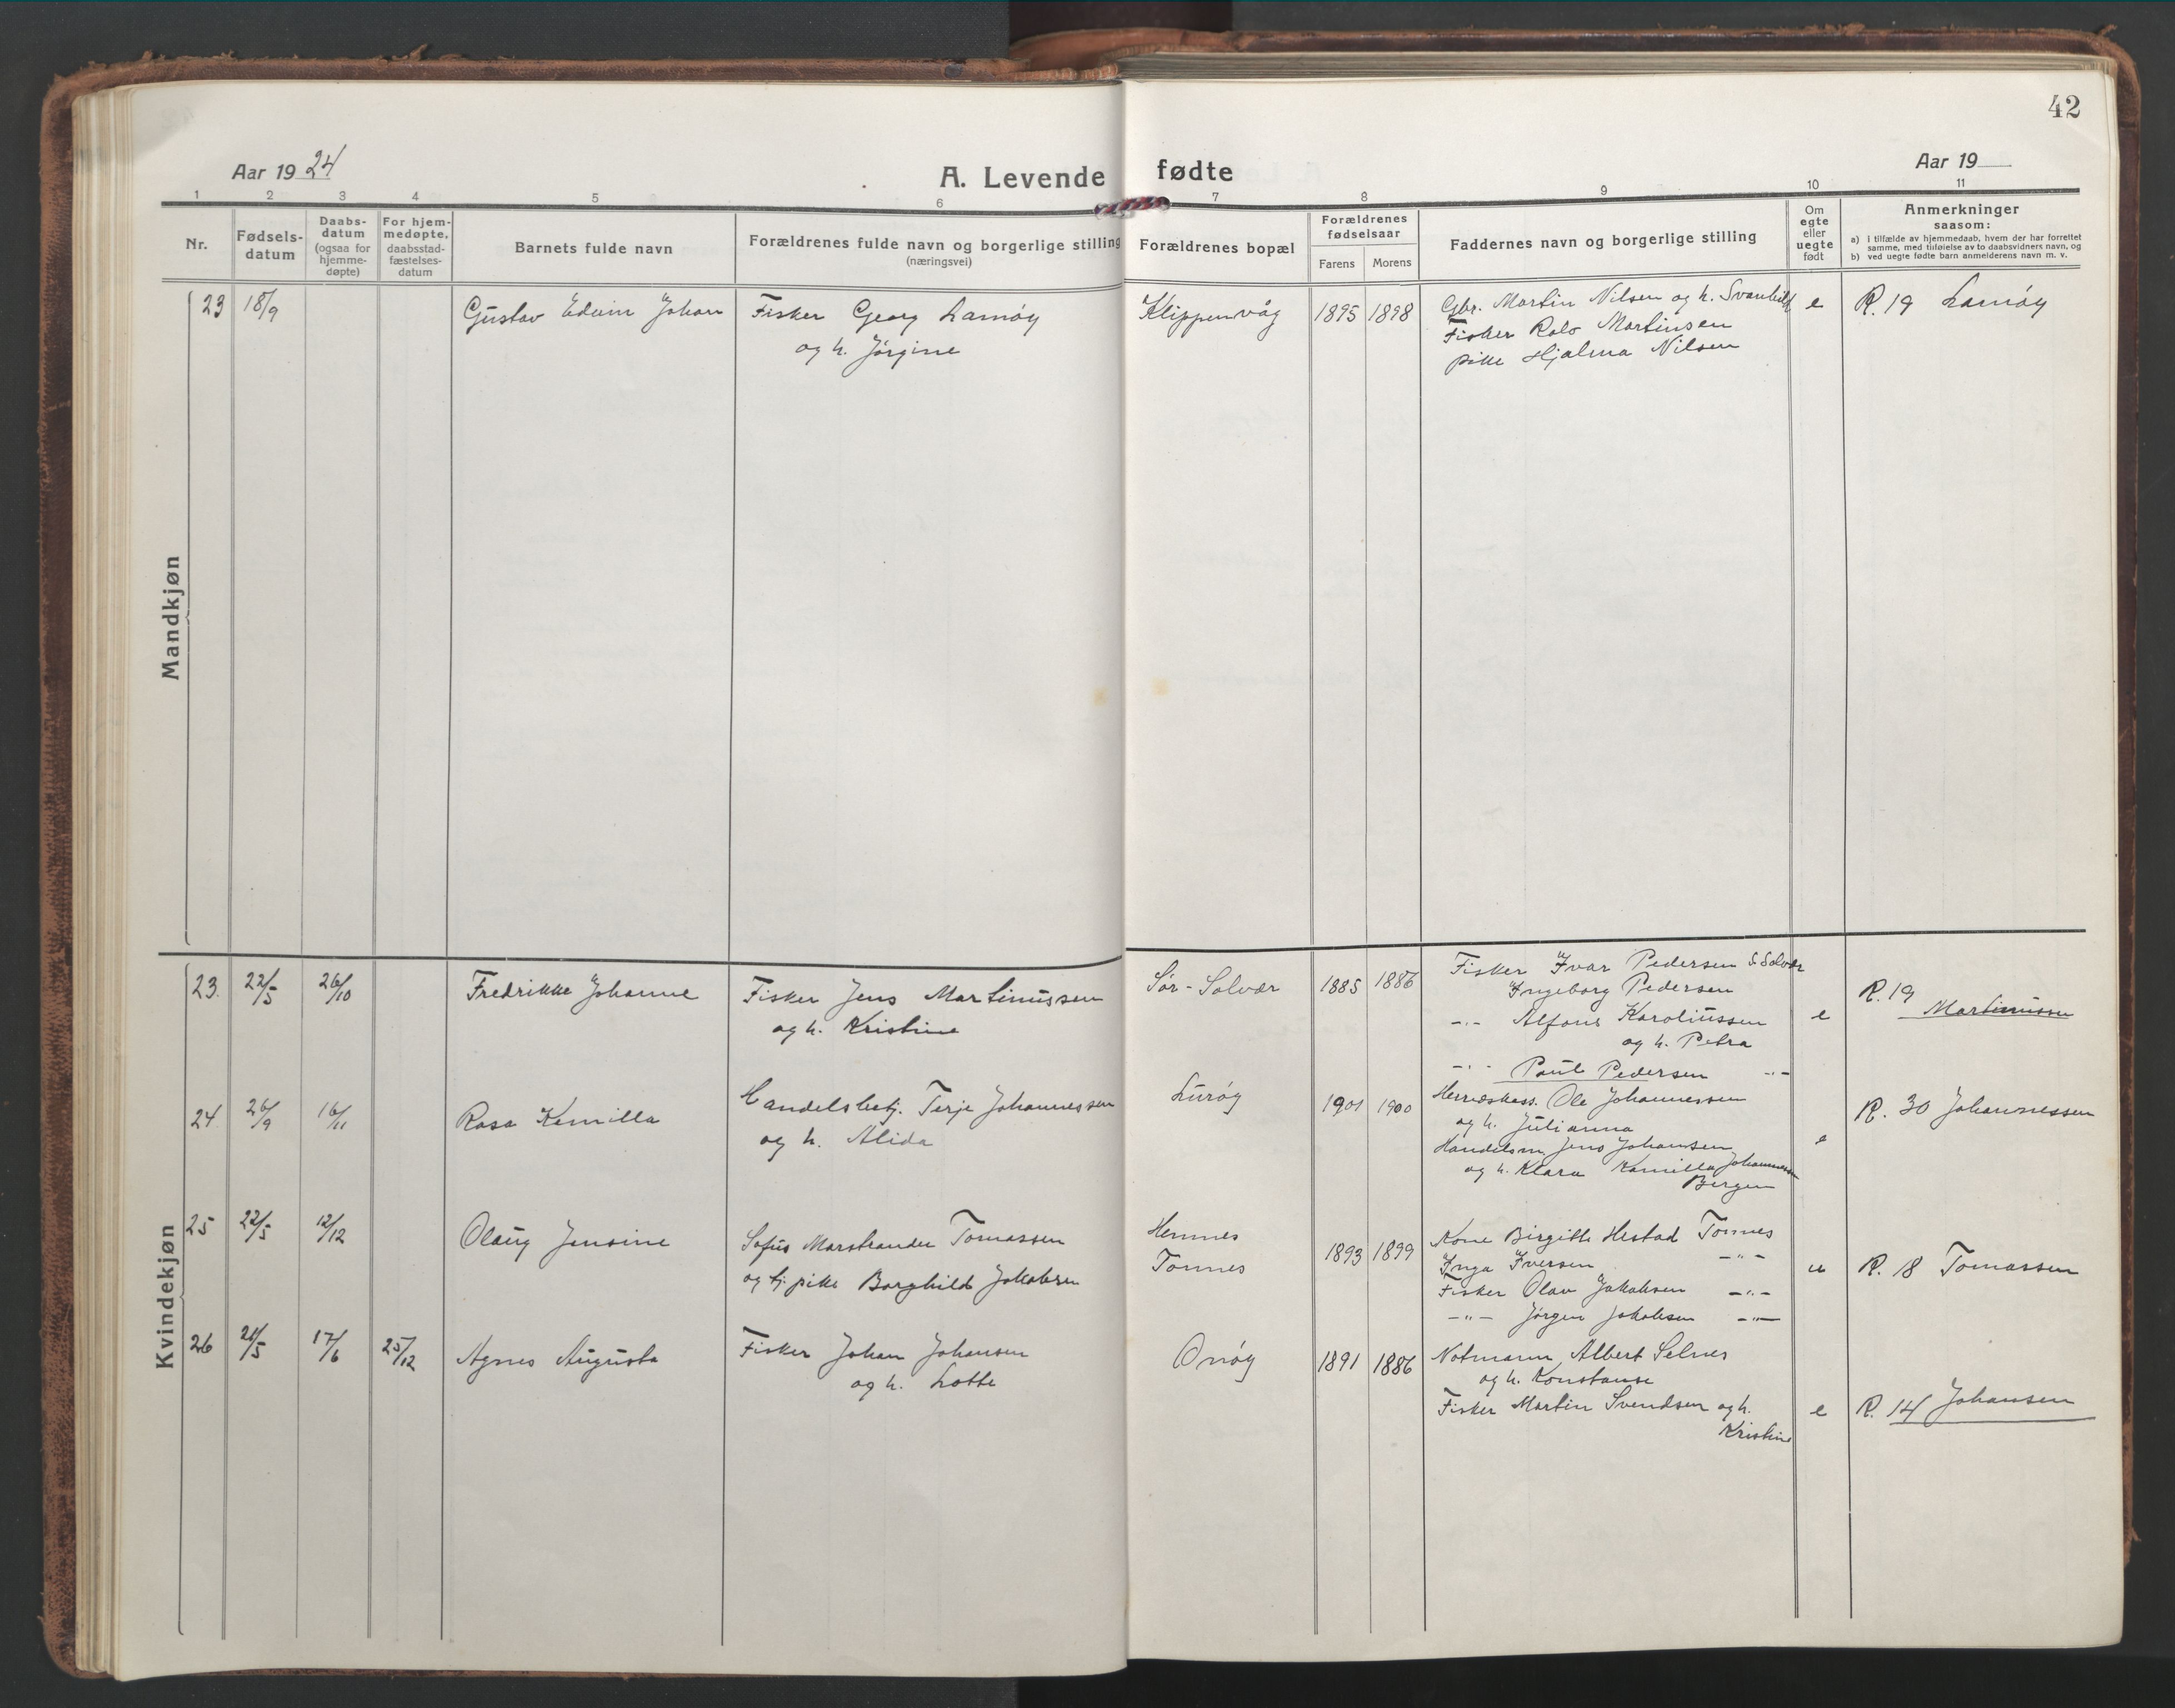 42
Aar 1924
A. Levende fødte
Aar 19
1 2 3 4 5 6 7 8 9 10 11
Nr.
Fødsels-
datum
Daabs-
datum
(ogsaa for
hjemme-
døpte)
For hjem-
medøpte,
daabsstad-
fæstelses-
datum
Barnets fulde navn
Forældrenes fulde navn og borgerlige stilling
(næringsvei)
Forældrenes bopæl
Forældrenes
fødselsaar
Farens Morens
Faddernes navn og borgerlige stilling
Om
egte
eller
uegte
født
Anmerkninger
saasom:
a) i tilfælde av hjemmedaab, hvem der har forrettet
samme, med tilføielse av to daabsvidners navn, og
b) ved uegte fødte barn anmelderens navn m. v.
Mandkjøn
23 18/9 Gustav Edvin Johan
Fisker Georg Lamøy
og h. Jørgine
Klippenvåg 1895 1898
Gbr. Martin Nilsen og h. Svanhild
Fisker Rolo Martinsen
pike Hjalma Nilsen
e R. 19 Lamøy
Kvindekjøn
23. 22/5 26/10 Fredrikke Johanne
Fisker Jens Martinussen
og h. Kristine
Sør-Solvær 1885 1886
Fisker Ivar Pedersen S. Solvær
Ingeborg Pedersen
-"- Alfons Karoliussen
og h. Petra
-"- Paul Pedersen -"-
e R. 19
Martinussen
24. 26/9 16/11 Rosa Kamilla
Handelsbetj. Terje Johannessen
og h. Alida
Lurøy 1901 1900
Herredskass. Ole Johannessen
og h. Julianna
Handelsm. Jens Johansen
og h. Klara Kamilla Johannessen
Bergen
e R. 30 Johannessen
25 22/5 12/12 Olaug Jensine
Sofus Marstrander Tomassen
og tj. pike Borghild Jakobsen
Hemnes
Tonnes
1893 1899
Kone Birgitte Hestad Tonnes
Inga Iversen -"-
Fisker Olav Jakobsen -"-
-"- Jørgen Jakobsen -"-
u R. 18 Tomassen
26 21/5 17/6 25/12 Agnes Augusta
Fisker Johan Johansen
og h. Lotte
Onøy 1891 1886
Notmann Albert Selnes
og h. Konstanse
Fisker Martin Svendsen og h.
Kristine
e R. 14 Johansen